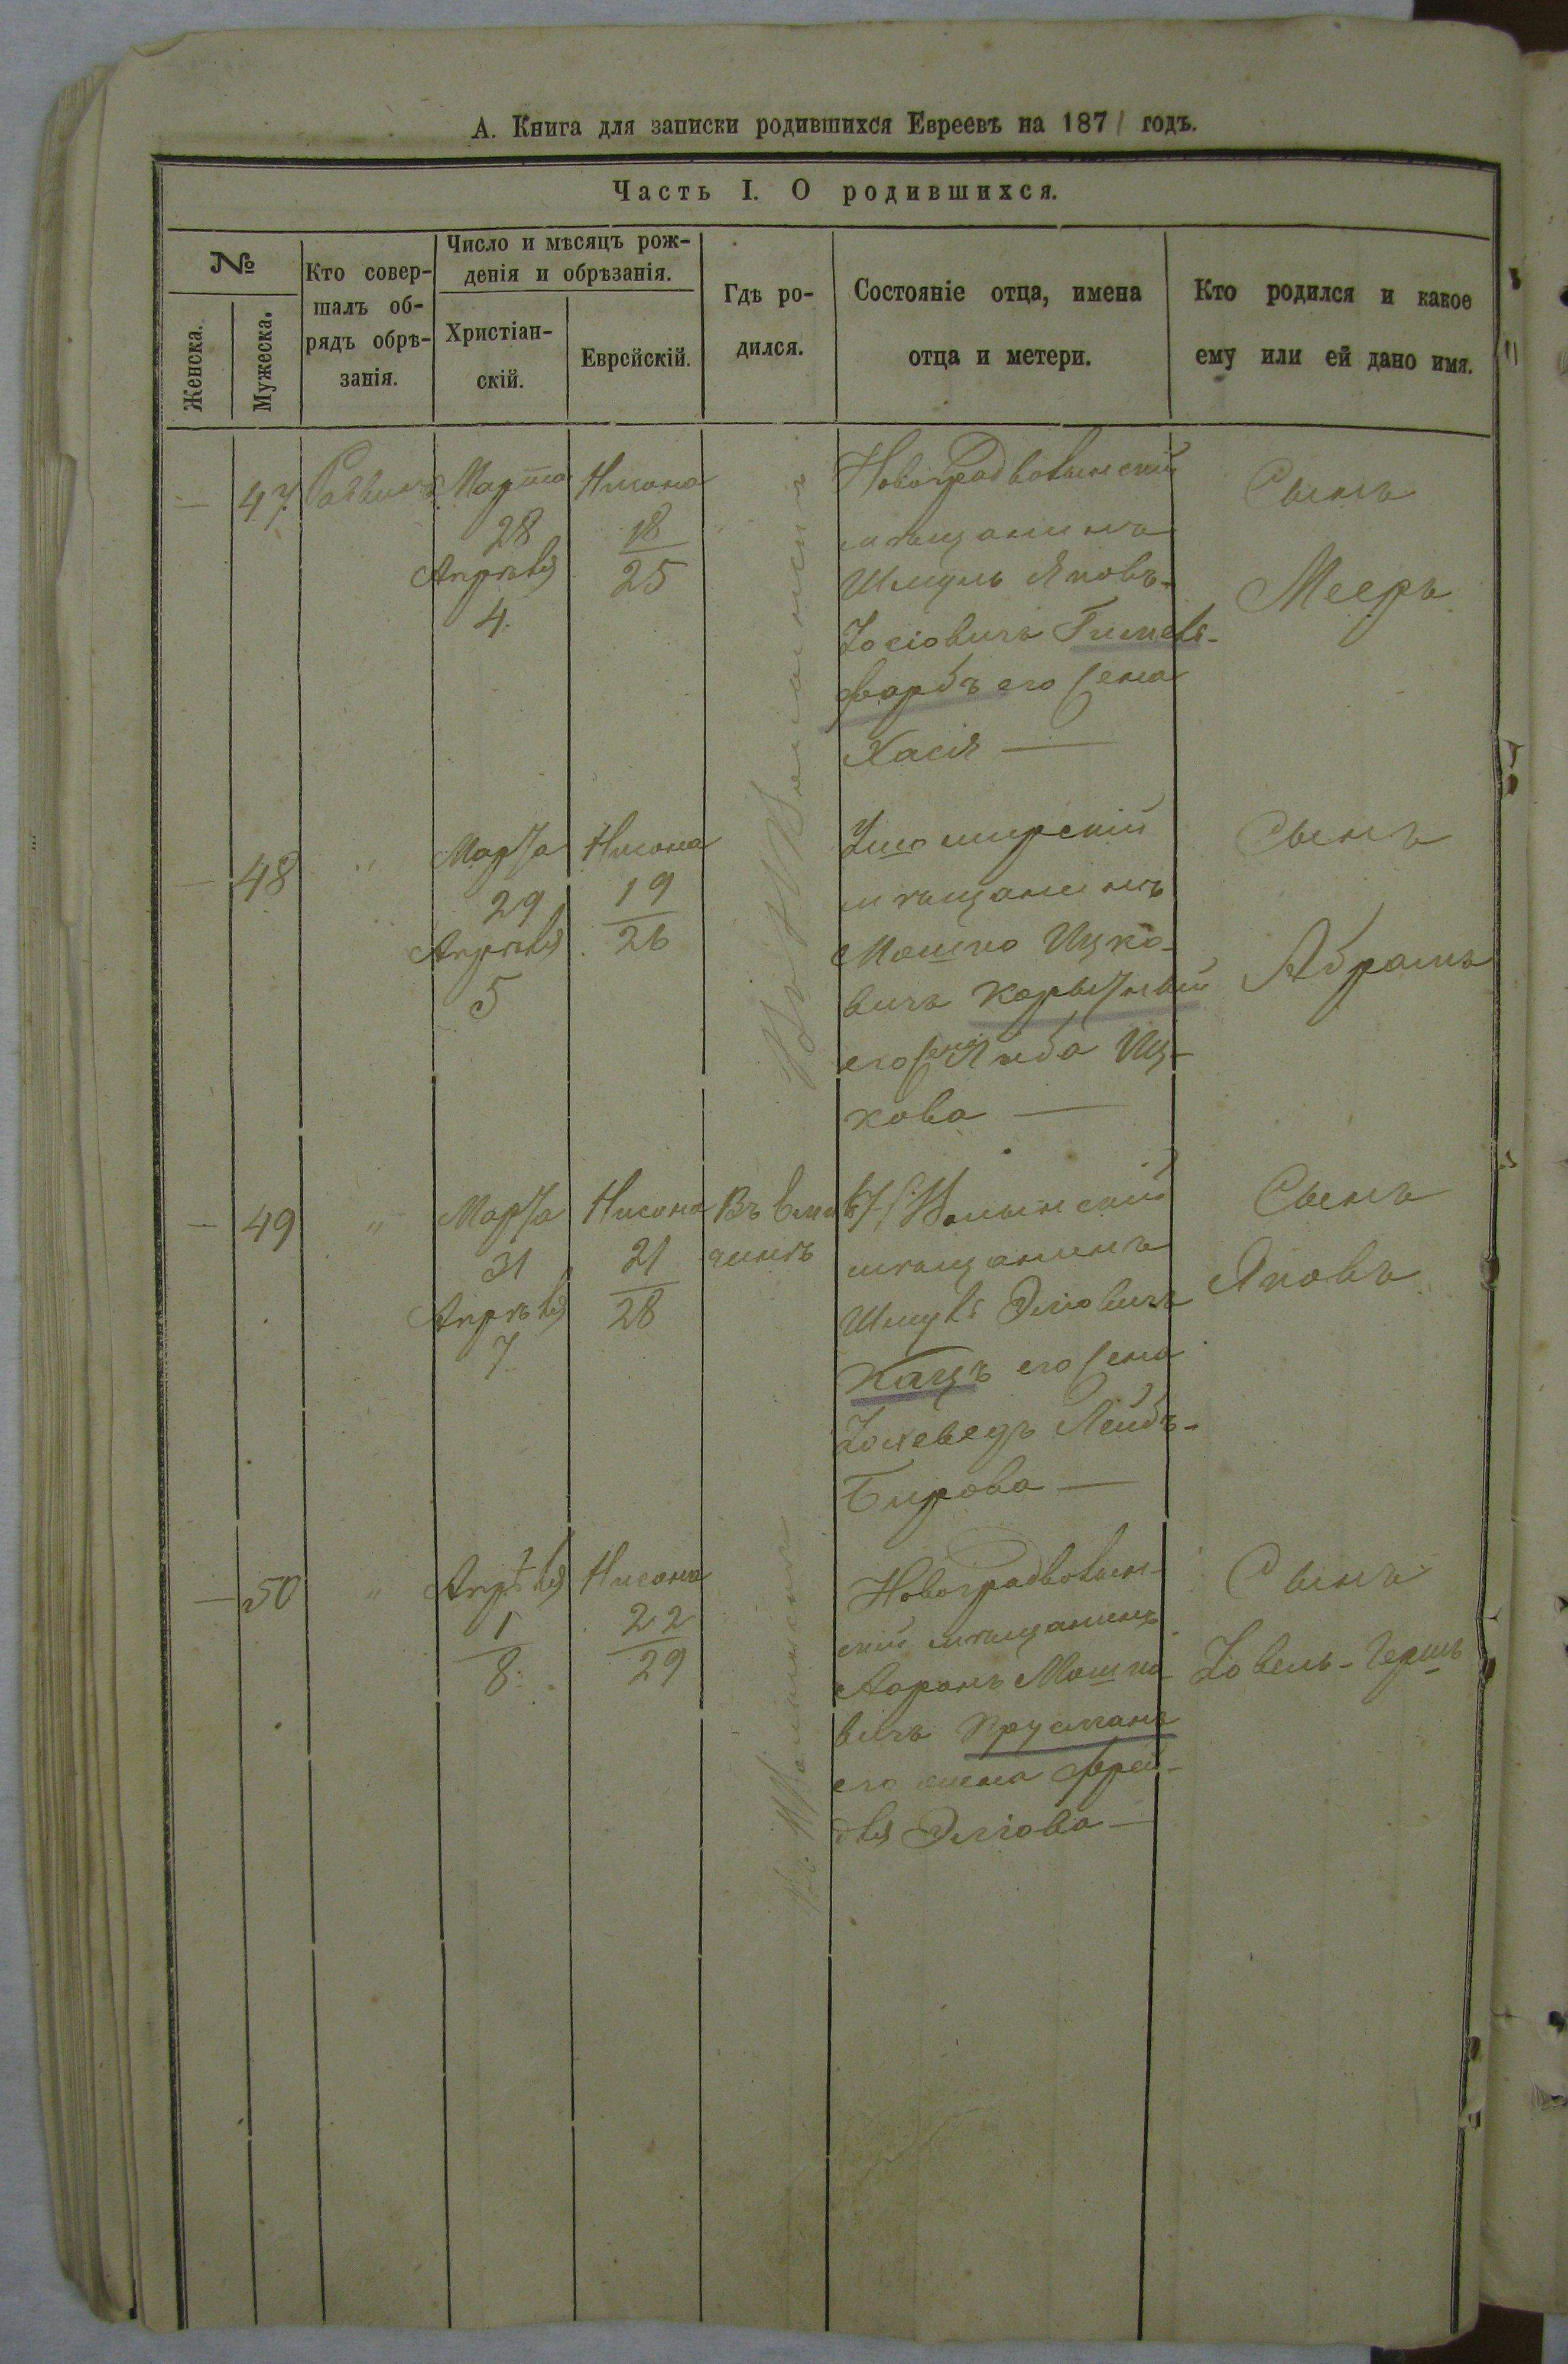 А. Книга для записки родившихся Евреевъ на 1871 годъ.
Часть I. О родившихся.
№
Женска.
Мужеска.
Кто совер-
шалъ об-
рядъ обрѣ-
занія.
Число и мѣсяцъ рож-
денія и обрѣзанія.
Христіан-
скій.
Еврейскій.
Гдѣ ро-
дился.
Состояніе отца, имена
отца и метери.
Кто родился и какое
ему или ей дано имя.
— 47
Раввинъ
Марта
28
Апрѣля
4.
Нисона
18
25
Новоградволынскій
мѣщанинъ
Шмуль Яковъ-
Іосіовичъ Гимель-
фарбъ его жена
Хася —
Сынъ
Мееръ
— 48
"
Марта
29
Апрѣля
5
Нисона
19
26
Житомирскій
мѣщанинъ
Мошко Ицко-
вичъ
его жена Либа Иц-
кова —
Сынъ
Абрамъ
— 49
"
Марта
31
Апрѣля
7
Нисона
21
28
Въ
Н/Волынскій
мѣщанинъ
Шмуль Эліовичъ
Кацъ его жена
Іохеведъ Лейбъ-
Берова —
Сынъ
Яковъ
— 50
"
Апрѣля
1
8.
Нисона
22
29
Новоградволын-
скій мѣщанинъ
Ааронъ Мошко
вичъ Крусманъ
его жена Фрей-
для Эліова —
Сынъ
Іовель-Гершъ